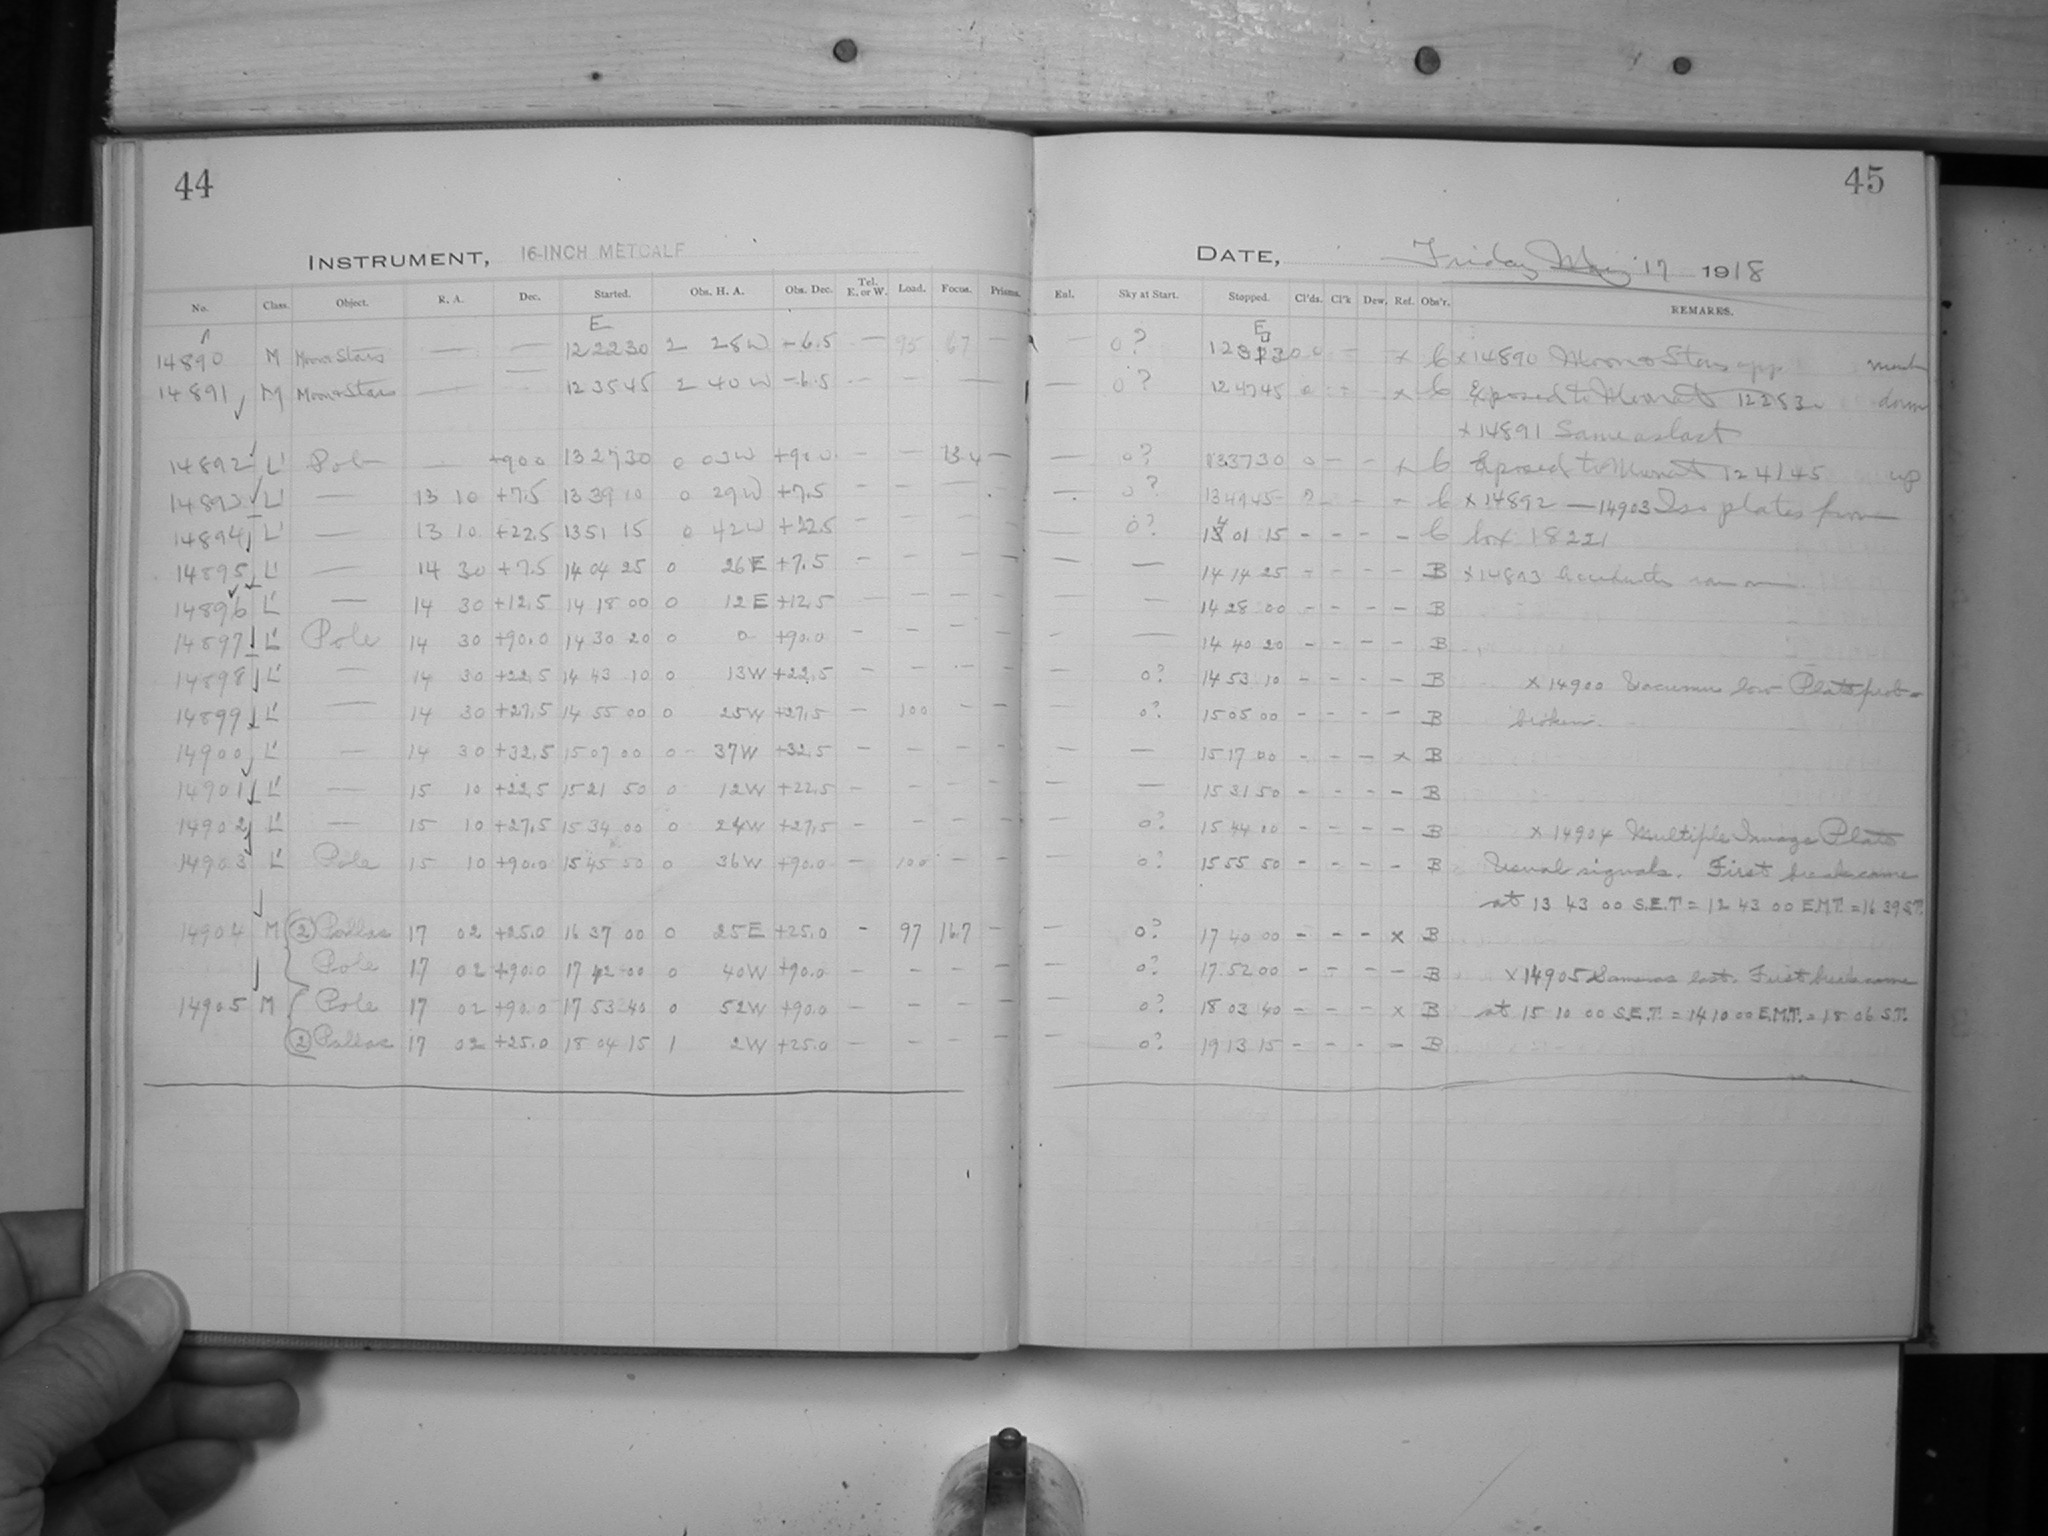 44
INSTRUMENT, 16-INCH METCALF
No. Class. Object. R. A. Dec. Started. Obs. H. A. Obs. Dec. Tel. E. or W. Load. Focus. Prisms.
E
14890 M Moon & Stars — — 12 22 30 2 28W -6.5 — 95 67 —
14891 M Moon & Stars — 12 35 45 2 40W -6.5 - - - —
14892 L' Pole — +90.0 13 27 30 0 03W +90.0 - — 13.4 -
14893 L' — 13 10 +7.5 13 39 10 0 29W +7.5 - - - -
14894 L' — 13 10 +22.5 13 51 15 0 42W +22.5 - - - -
14895 L' — 14 30 +7.5 14 04 25 0 26E +7.5 - - - -
14896 L' — 14 30 +12.5 14 18 00 0 12E +12.5 - - - -
14897 L' Pole 14 30 +90.0 14 30 20 0 0 +90.0 - - - -
14898 L' — 14 30 +22.5 14 43 10 0 13W +22.5 - - - -
14899 L' — 14 30 +27.5 14 55 00 0 25W +27.5 - 100 - -
14900 L' — 14 30 +32.5 15 07 00 0 37W +32.5 - - - -
14901 L' — 15 10 +22.5 15 21 50 0 12W +22.5 - - - -
14902 L' — 15 10 +27.5 15 34 00 0 24W +27.5 - - - -
14903 L' Pole 15 10 +90.0 15 45 50 0 36W +90.0 - 100 - -
14904 M (2) Pallas 17 02 +25.0 16 37 00 0 25E +25.0 - 97 16.7 -
Pole 17 02 +90.0 17 42 00 0 40W +90.0 - - - -
14905 M Pole 17 02 +90.0 17 53 40 0 52W +90.0 - - - -
(2) Pallas 17 02 +25.0 18 04 15 1 2W +25.0 - - - -
45
DATE, Friday May 17 1918
Eul. Sky at Start. Stopped. Cl'ds. Cl'k Dew. Ref. Obs'r. REMARKS.
E
— 0? x C x 14890 Moon & Stars
— 0? 12 47 45 0 - - x C Exposed to Moon at 12 28 3 down
x 14891 Same as last
— 0? 13 37 30 0 - - x C Exposed to Moon at 12 41 45 up
— 0? 13 49 45 ? - - - C x 14892 — 14903 Iso plates from
— 0? 14 01 15 - - - - C box 18221
— — 14 14 25 - - - - B x 14893
— — 14 28 00 - - - - B
— — 14 40 20 - - - - B
— 0? 14 53 10 - - - - B x 14900 Vacuum low Plate prob-
— 0? 15 05 00 - - - - B broken.
— — 15 17 00 - - - x B
— — 15 31 50 - - - - B
— 0? 15 44 00 - - - - B x 14904 Multiple Image Plate
— 0? 15 55 50 - - - - B Usual signals. First break came
at 13 43 00 S.E.T. = 12 43 00 E.M.T. = 16 39 S.T.
— 0? 17 40 00 - - - x B
— 0? 17 52 00 - - - - B x 14905 Same as last. First break came
— 0? 18 03 40 - - - x B at 15 10 00 S.E.T. = 14 10 00 E.M.T. = 18 06 S.T.
— 0? 19 13 15 - - - - B